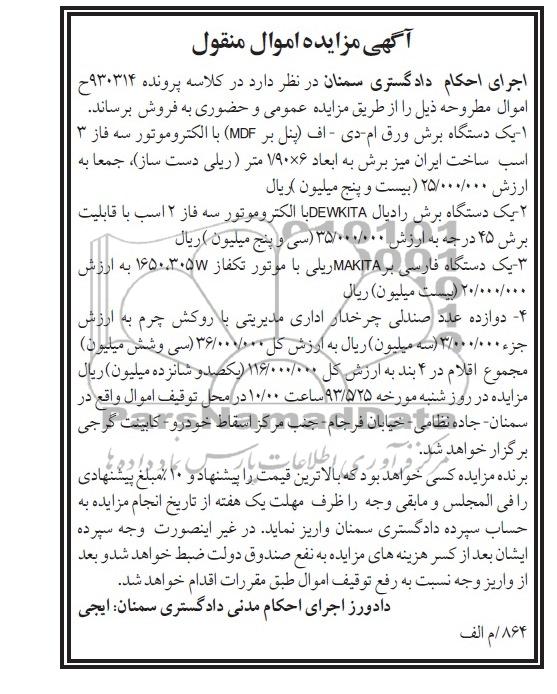 آگهی مزایده اموال منقول
اجرای احکام دادگستری سمنان در نظر دارد در کلاسه پرونده ۹۳۰۳۱۴ح
اموال مطروحه ذیل را از طریق مزایده عمومی و حضوری به فروش برساند.
۱-یک دستگاه برش ورق ام-دی - اف (پنل بر MDF) با الکتروموتور سه فاز ۳
اسب ساخت ایران میز برش به ابعاد ۶×۱/۹۰ متر ( ریلی دست ساز)، جمعا به
ارزش ۲۵/۰۰۰/۰۰۰ (بیست و پنج میلیون )ریال
۲-یک دستگاه برش رادیال DEWKITAبا الکتروموتور سه فاز ۲ اسب با قابلیت
برش ۴۵ درجه به ارزش ۳۵/۰۰۰/۰۰۰ (سی و پنج میلیون )ریال
۳-یک دستگاه فارسی برMAKITAریلی با موتور تکفاز ۱۶۵۰.۳۰۵W به ارزش
۲۰/۰۰۰/۰۰۰ (بیست میلیون) ریال
۴- دوازده عدد صندلی چرخدار اداری مدیریتی با روکش چرم به ارزش
جزء۳/۰۰۰/۰۰۰ (سه میلیون) ریال به ارزش کل ۳۶/۰۰۰/۰۰۰ (سی وشش میلیون)
مجموع اقلام در ۴ بند به ارزش کل ۱۱۶/۰۰۰/۰۰۰ (یکصدو شانزده میلیون) ریال
مزایده در روز شنبه مورخه ۹۳/۵/۲۵ ساعت ۱۰/۰۰ در محل توقیف اموال واقع در
سمنان- جاده نظامی - خیابان فرجام - جنب مرکز اسقاط خودرو - کابینت گرجی
برگزار خواهد شد.
برنده مزایده کسی خواهد بود که بالاترین قیمت را پیشنهاد و ۱۰٪مبلغ پیشنهادی
را فی المجلس و مابقی وجه را ظرف مهلت یک هفته از تاریخ انجام مزایده به
حساب سپرده دادگستری سمنان واریز نماید. در غیر اینصورت وجه سپرده
ایشان بعد از کسر هزینه های مزایده به نفع صندوق دولت ضبط خواهد شدو بعد
از واریز وجه نسبت به رفع توقیف اموال طبق مقررات اقدام خواهد شد.
دادورز اجرای احکام مدنی دادگستری سمنان: ایجی
۸۶۴ /م الف
ParsNamadData
مرکز فرآوری اطلاعات پارس نماد داده ها